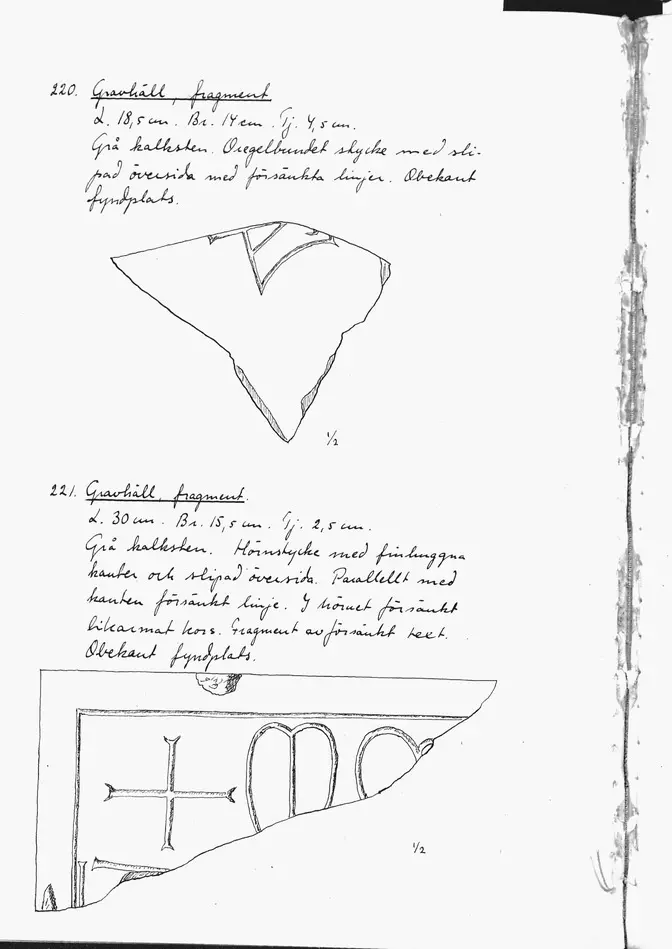 220. Gravhäll, fragment.
L. 18,5 cm. Br. 14 cm. Tj. 4,5 cm.
Grå kalksten. Oregelbundet stycke med sli-
pad översida med försänkta linjer. Obekant
fyndplats.
1/2
221. Gravhäll, fragment.
L. 30 cm. Br. 15,5 cm. Tj. 2,5 cm.
Grå kalksten. Hörnstycke med finhuggna
kanter och slipad översida. Parallellt med
kanten försänkt linje. I hörnet försänkt
likarmat kors. Fragment av försänkt text.
Obekant fyndplats.
1/2